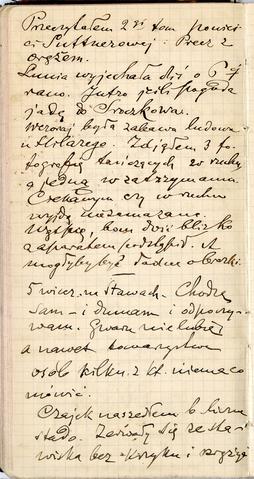 Przeczytałem 2gi tom powieś
ci Suttnerowej: Precz z
orężem.
Lunia wyjechała dziś o 6ej
rano. Jutro jeśli pogoda
jadę do Sroczkowa.
Wczoraj była zabawa ludowa
u Horlazego. Zdjąłem 3 fo-
tografie tańczących w ruchu
a jedną w zatrzymaniu.
Ciekawym czy w ruchu
wyjdą niezamazane.
bom dość blisko
z aparatem podszedł. A
mogłyby być ładne obrazki.
5 wiecz. na Stawach. Chodzę
sam - i dumam i odpoczy-
wam. Gwaru nie lubię
a nawet towarzystwa
osób kilku z kt. niema co
mówić.
Czajek naszedłem
stado. Zerwały się ze sta-
wiska bez krzyku i